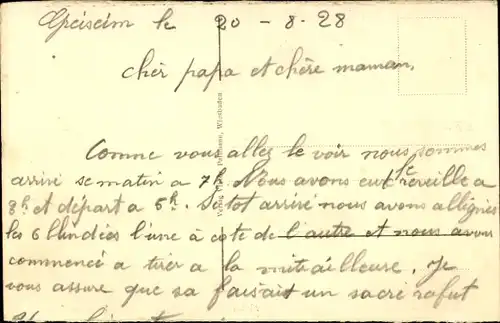 le 20 - 8 - 28
cher papa et chère maman,
Comme vous allez le voir nous sommes
arivé se matin a 7h. Nous avons eut le reveille a
3h et départ a 5h. Setot arivé nous avons alligner
les 6 blindées l'une à cote de l'autre et nous avons
commencé a tirer a la mitrailleuse. Je
vous assure que sa faisait un sacré rafut
Wiesbaden